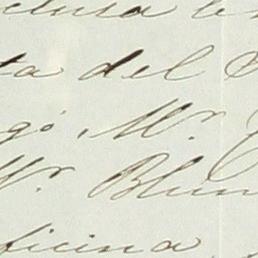 clusa la
ta del C
gó, Mr.
Mr. Blum
ficina